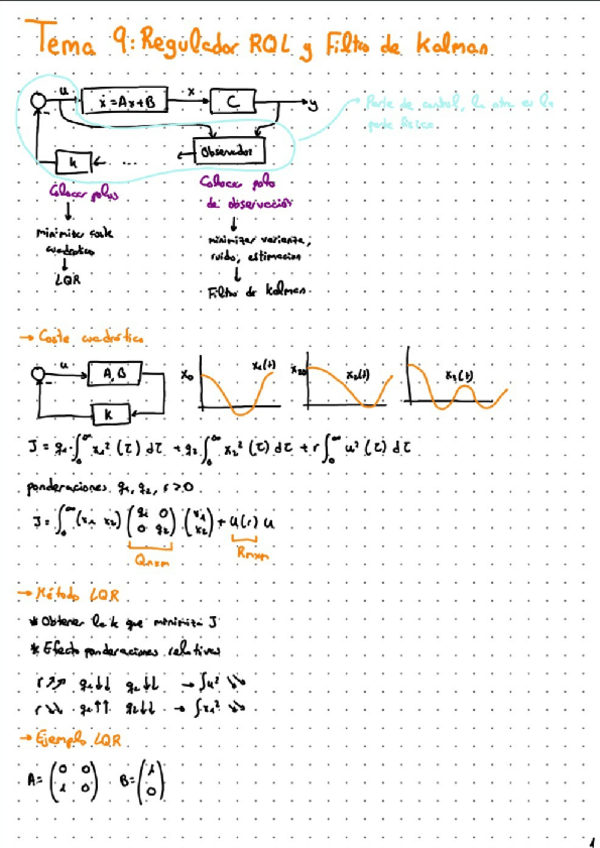 Tema 9: Regulador RQL y Filtro de Kalman
u
ẋ = Ax + B
x
C
y
Parte de control, la otra es la
parte física
Observador
k
...
Colocar polos
Colocar polo
de observación
minimizar coste
cuadrático
LQR
minimizar varianza,
ruido, estimacion
Filtro de Kalman
→ Coste cuadrático
u
A, B
K
x₀
x₁(t)
x₂₀
x₂(t)
x₁(t)
J = q₁·∫₀^∞ x₁²(τ) dτ + q₂∫₀^∞ x₂²(τ) dτ + r∫₀^∞ u²(τ) dτ
ponderaciones q₁, q₂, r > 0
J = ∫₀^∞ (x₁ x₂) (q₁ 0 0 q₂) · (x₁ x₂) + u(r) u
Qnxm
Rmxm
→ Método LQR
* Obtener la k que minimiza J
* Efecto ponderaciones relativas
r ↗↗ q₁↓↓ q₂↓↓ → ∫u² ↘↘
r ↘↘ q₁↑↑ q₂↓↓ → ∫x₁² ↘↘
→ Ejemplo LQR
A = (0 0 1 0) B = (1 0)
1